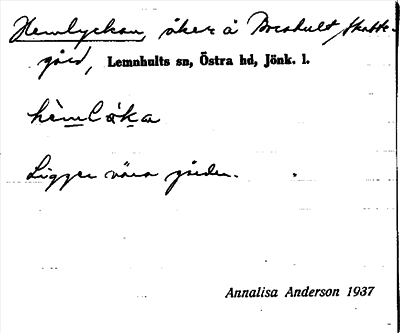 Hemlyckan, åker å Brohult, skatte-
gård, Lemnhults sn, Östra hd, Jönk. l.
Ligger nära gården.
Annalisa Anderson 1937